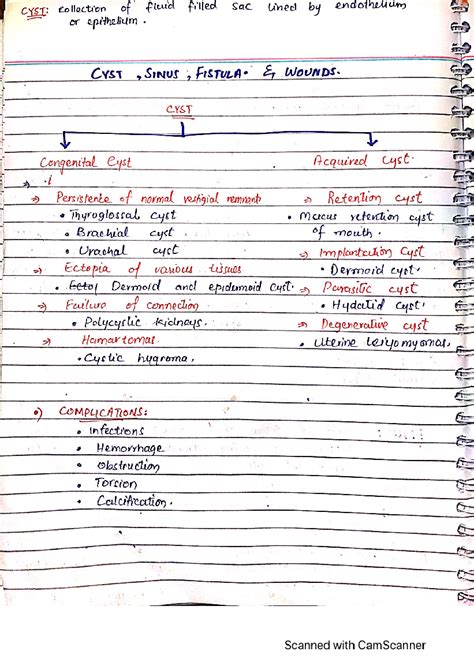 CYST: Collection of fluid filled sac lined by endothelium
or epithelium.
CYST, SINUS, FISTULA. & WOUNDS.
CYST
Congenital Cyst
Acquired Cyst.
⇒ Persistence of normal vestigial remnant
⇒ Retention cyst
• Thyroglossal cyst
• Mucus retention cyst
• Brachial cyst
of mouth.
• Urachal cyst
⇒ Implantation Cyst
⇒ Ectopia of various tissues
• Dermoid cyst.
• Dermoid and epidermoid cyst.
⇒ Parasitic cyst
⇒ Failure of connection
• Hydatid cyst.
• Polycystic kidneys.
⇒ Degenerative cyst
⇒ Hamartomas.
• Uterine leiyomyomas.
• Cystic hygroma.
•) COMPLICATIONS:
• Infections
• Hemorrhage
• Obstruction
• Torsion
• Calcification.
Scanned with CamScanner